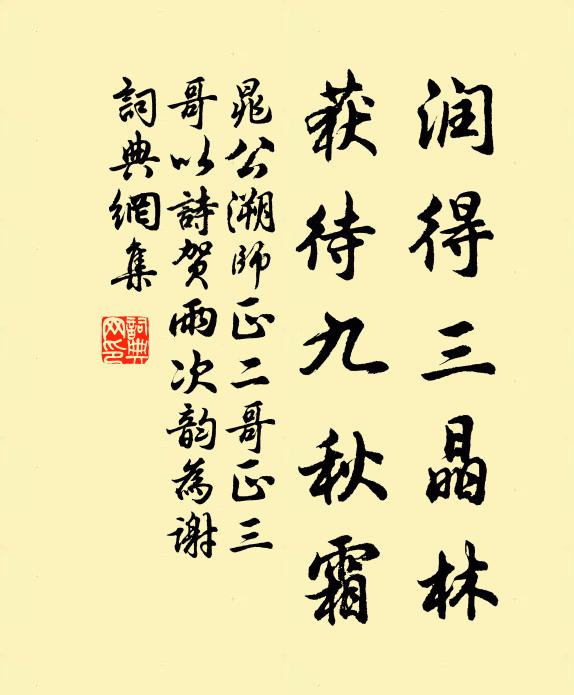 润得三晶林
获待九秋霜
晁公溯師正二哥正三
哥以詩贺雨次韵為谢
詞典網集
詞典网印